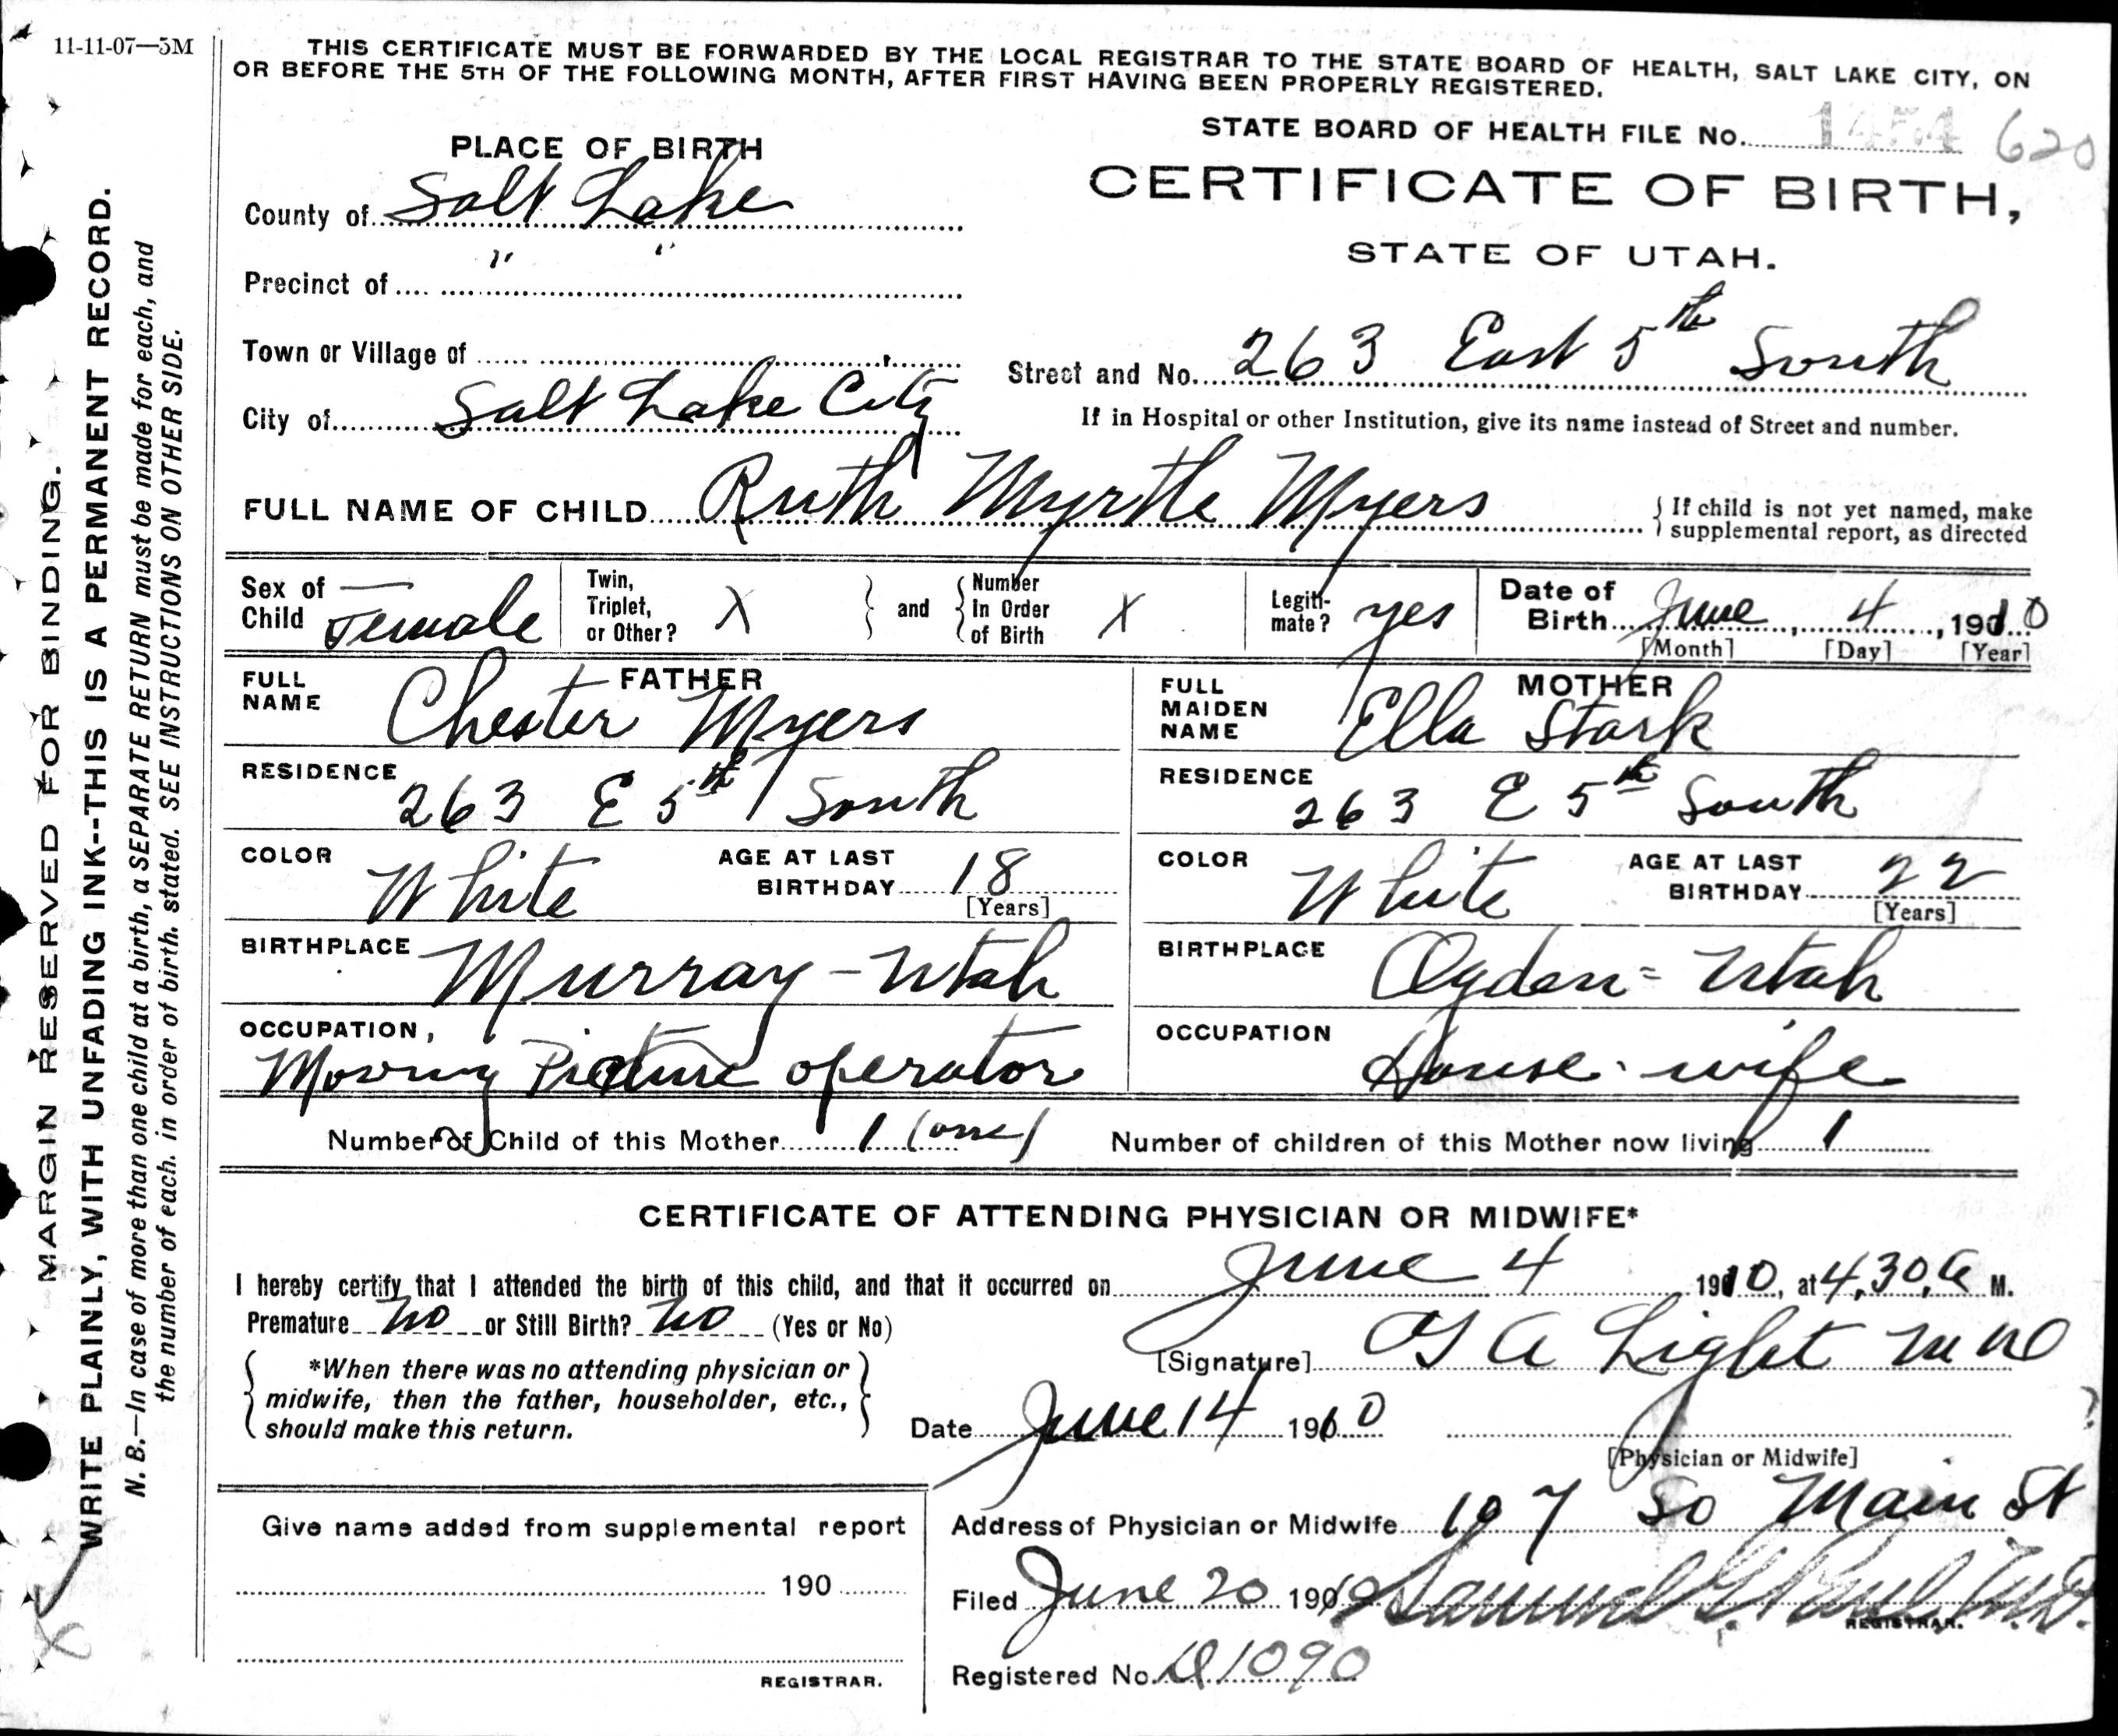 11-11-07—5M
THIS CERTIFICATE MUST BE FORWARDED BY THE LOCAL REGISTRAR TO THE STATE BOARD OF HEALTH, SALT LAKE CITY, ON
OR BEFORE THE 5TH OF THE FOLLOWING MONTH, AFTER FIRST HAVING BEEN PROPERLY REGISTERED.
STATE BOARD OF HEALTH FILE No. 620
PLACE OF BIRTH
CERTIFICATE OF BIRTH,
STATE OF UTAH.
County of Salt Lake
Precinct of " "
Town or Village of
Street and No. 263 East 5th South
City of Salt Lake City
If in Hospital or other Institution, give its name instead of Street and number.
FULL NAME OF CHILD Ruth Myrtle Myers
{ If child is not yet named, make
supplemental report, as directed
Sex of Child Female
Twin, Triplet, or Other? X } and { Number In Order of Birth X
Legiti-mate? yes
Date of Birth June 4, 1910
[Month] [Day] [Year]
FATHER
FULL NAME Chester Myers
RESIDENCE 263 E 5th South
COLOR White
AGE AT LAST BIRTHDAY 18
[Years]
BIRTHPLACE Murray - Utah
OCCUPATION, Moving Picture operator
MOTHER
FULL MAIDEN NAME Ella Stark
RESIDENCE 263 E 5th South
COLOR White
AGE AT LAST BIRTHDAY 22
[Years]
BIRTHPLACE Ogden = Utah
OCCUPATION House-wife
Number of Child of this Mother 1 (one)
Number of children of this Mother now living 1
CERTIFICATE OF ATTENDING PHYSICIAN OR MIDWIFE*
I hereby certify that I attended the birth of this child, and that it occurred on June 4 1910, at 4,30, a M.
Premature no or Still Birth? no (Yes or No)
{ *When there was no attending physician or
midwife, then the father, householder, etc.,
should make this return. }
[Signature] A Light MD
Date June 14 1910
[Physician or Midwife]
?
Address of Physician or Midwife 107 So Main St
Give name added from supplemental report
190
REGISTRAR.
Filed June 20 1910 Samuel G. Paul M.D.
REGISTRAR.
Registered No. 1090
MARGIN RESERVED FOR BINDING.
WRITE PLAINLY, WITH UNFADING INK--THIS IS A PERMANENT RECORD.
N. B.—In case of more than one child at a birth, a SEPARATE RETURN must be made for each, and
the number of each. in order of birth. stated. SEE INSTRUCTIONS ON OTHER SIDE.